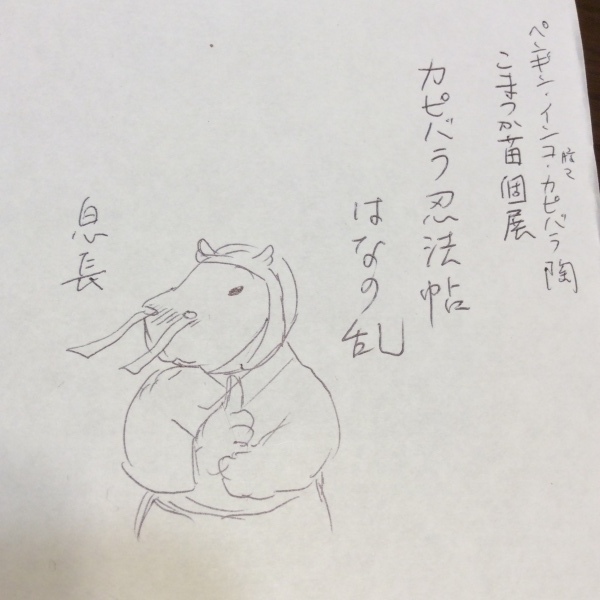 ペンギン・インコ・カピバラ陶
こまつか苗個展
カピバラ忍法帖
はなの乱
息長